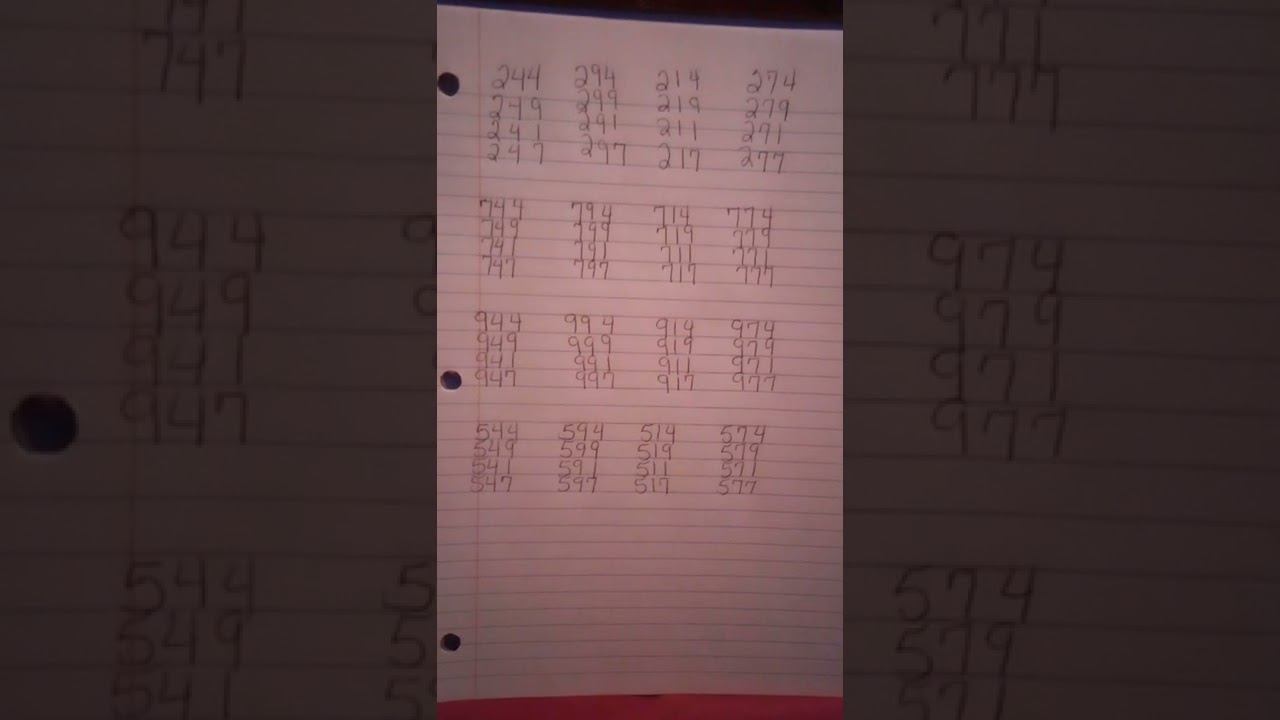 244 294 214 274
249 299 219 279
241 291 211 271
247 297 217 277
744 794 714 774
749 799 719 779
741 791 711 771
747 797 717 777
944 994 914 974
949 999 919 979
941 991 911 971
947 997 917 977
544 594 514 574
549 599 519 579
541 591 511 571
547 597 517 577